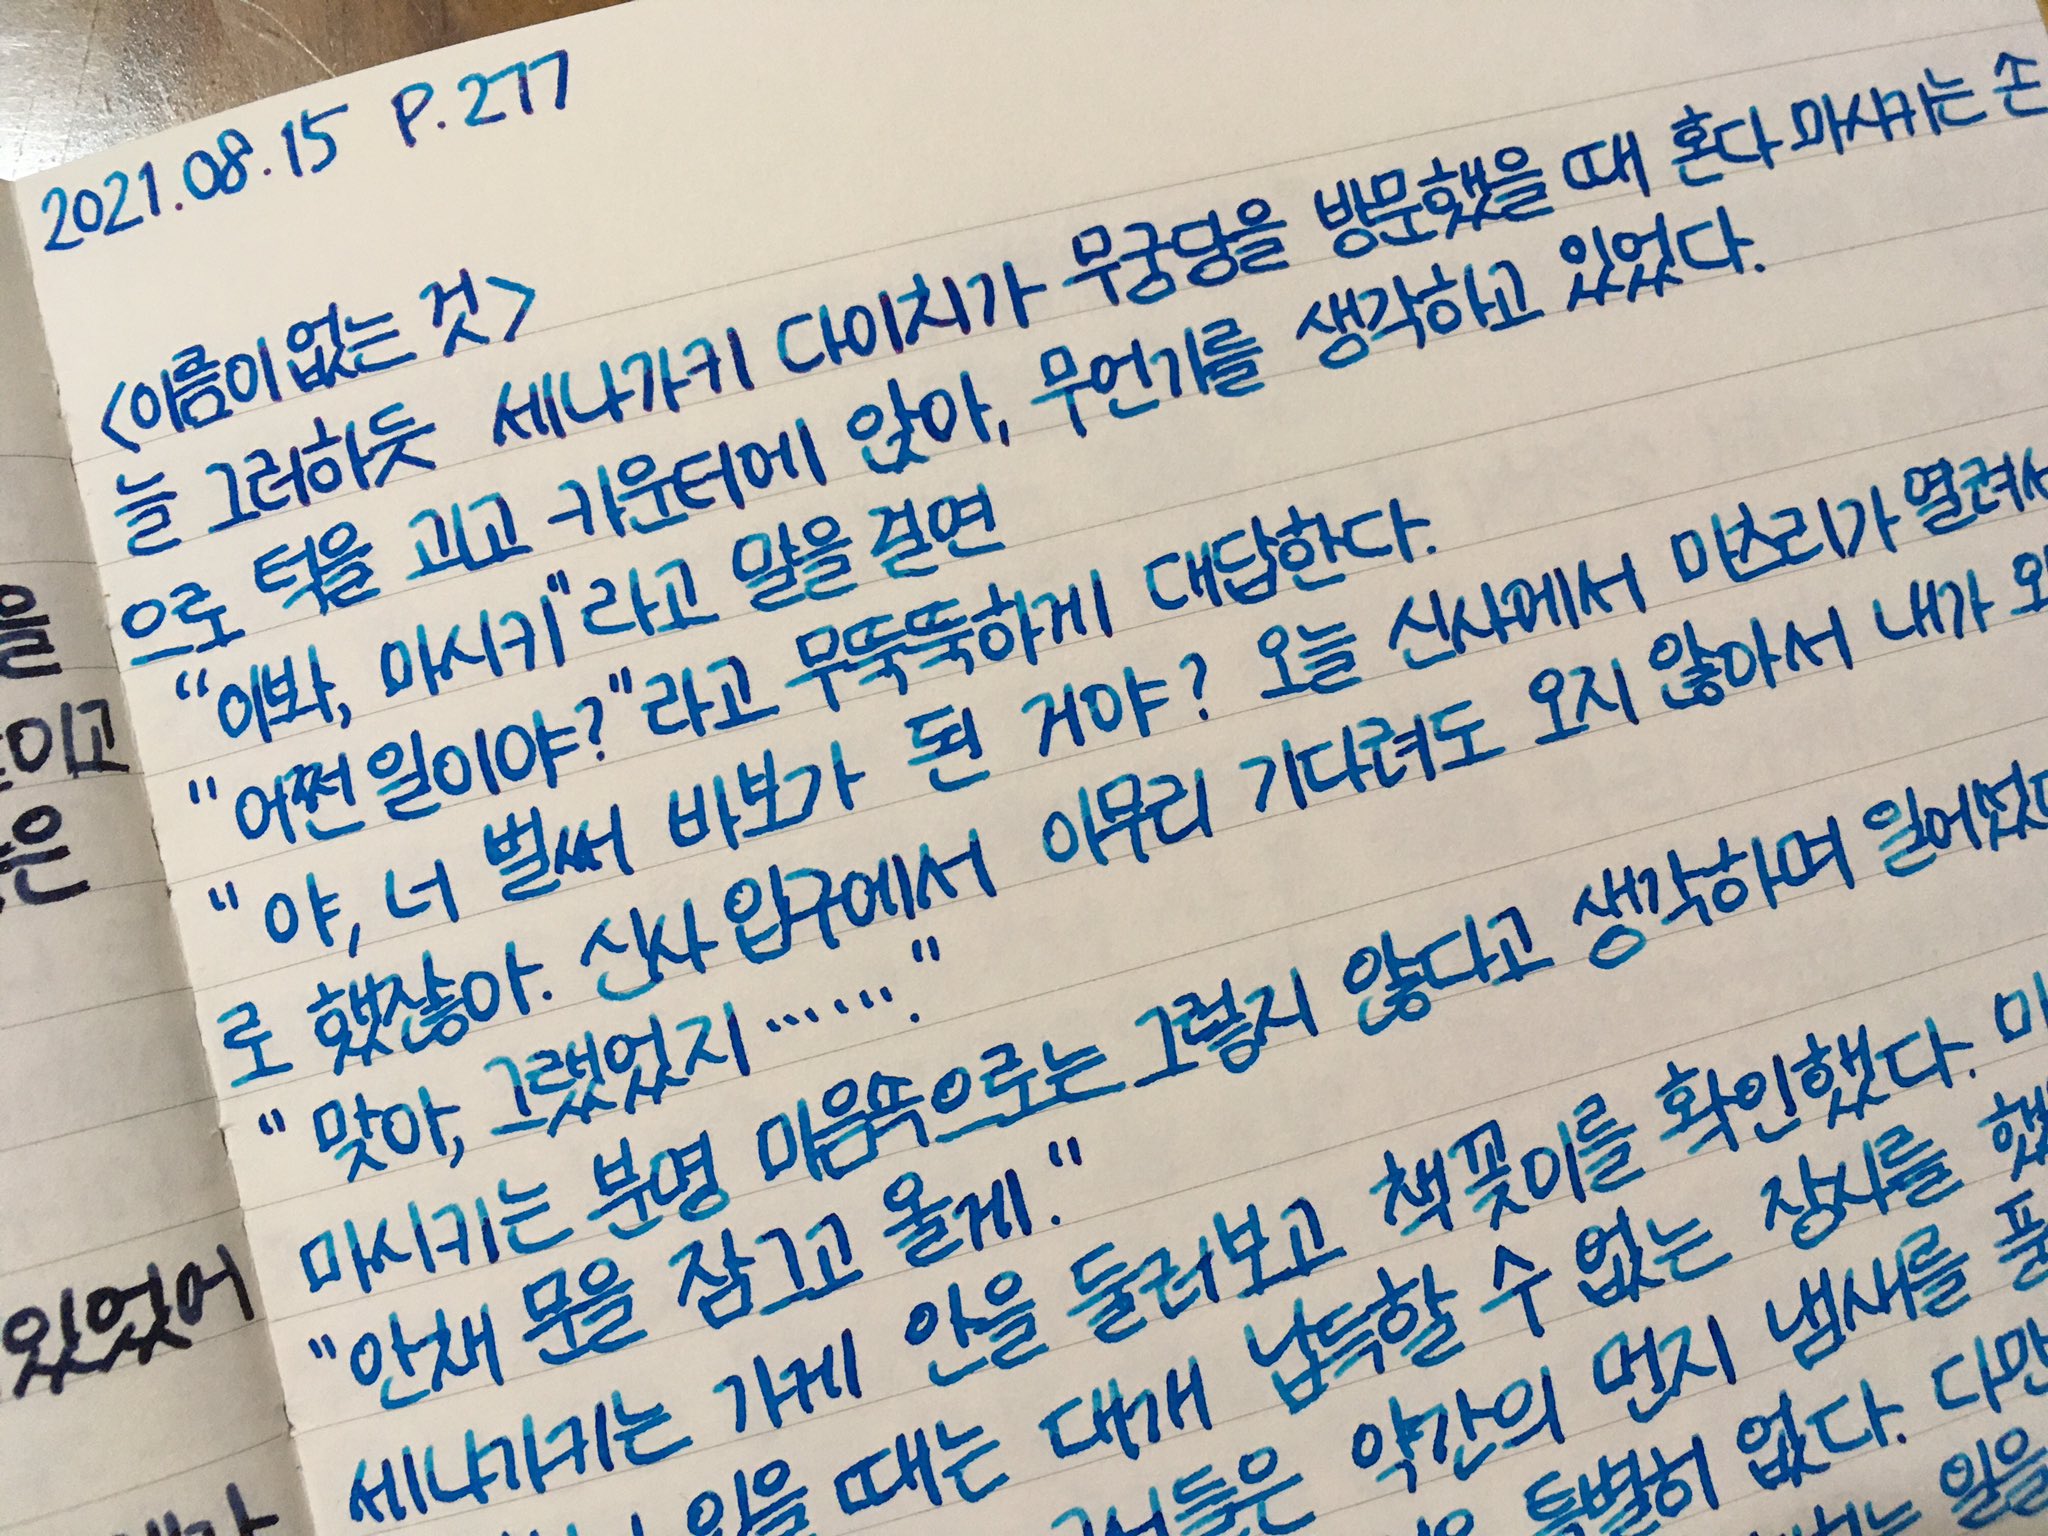 2021.08.15 P.277
<이름이 없는 것>
늘 그러하듯 세나가키 다이치가 무궁당을 방문했을 때 혼다 마시키는 손
으로 턱을 괴고 카운터에 앉아, 무언가를 생각하고 있었다.
"이봐, 마시키"라고 말을 걸면
"어쩐 일이야?"라고 무뚝뚝하게 대답한다.
"야, 너 벌써 바보가 된 거야? 오늘 신사에서 마츠리가 열려서
로 했잖아. 신사 입구에서 아무리 기다려도 오지 않아서 내가 와
"맞아, 그랬었지……."
마시키는 분명 마음속으로는 그렇지 않다고 생각하며 일어섰다
"안채 문을 잠그고 올게."
세나가키는 가게 안을 둘러보고 책꽂이를 확인했다. 마
있을 때는 대개 납득할 수 없는 장사를 했
약간의 먼지 냄새를 풀
특별히 없다. 다만
일을
을
이고
은
있었어